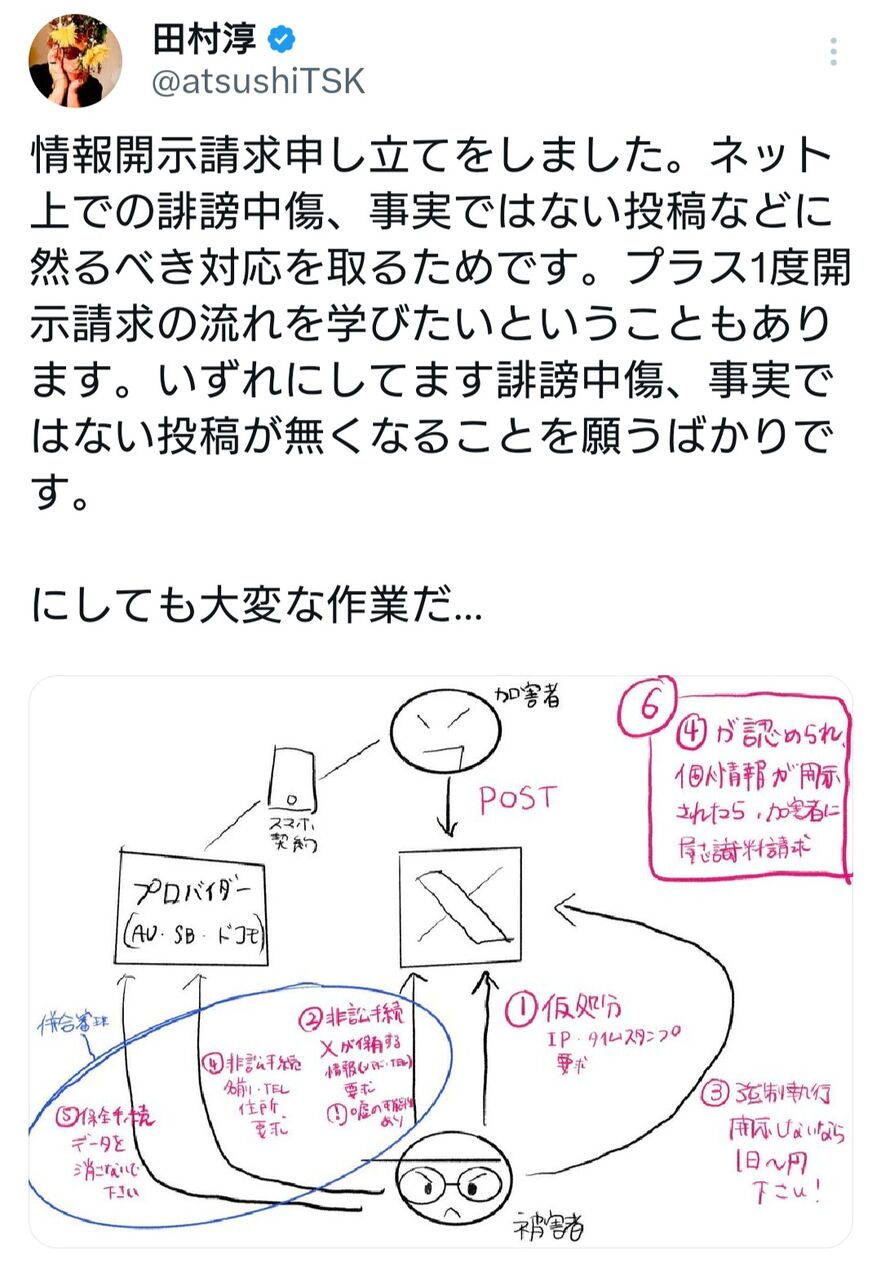 田村淳
@atsushiTSK
情報開示請求申し立てをしました。ネット
上での誹謗中傷、事実ではない投稿などに
然るべき対応を取るためです。プラス1度開
示請求の流れを学びたいということもあり
ます。いずれにしてます誹謗中傷、事実で
はない投稿が無くなることを願うばかりで
す。
にしても大変な作業だ...
加害者
POST
スマホ
契約
プロバイダー
(AU・SB・ドコモ)
X
⑥
④が認められ、
個人情報が開示
されたら、加害者に
料請求
併合審理
①仮処分
IP・タイムスタンプ
要求
②非訟手続
Xが保有する
情報
要求
①嘘の可能性
あり
③強制執行
開示しないなら
1日〜円
下さい!
④非訟手続
名前・TEL
住所
要求
⑤保全手続
データを
消さないで
下さい
被害者